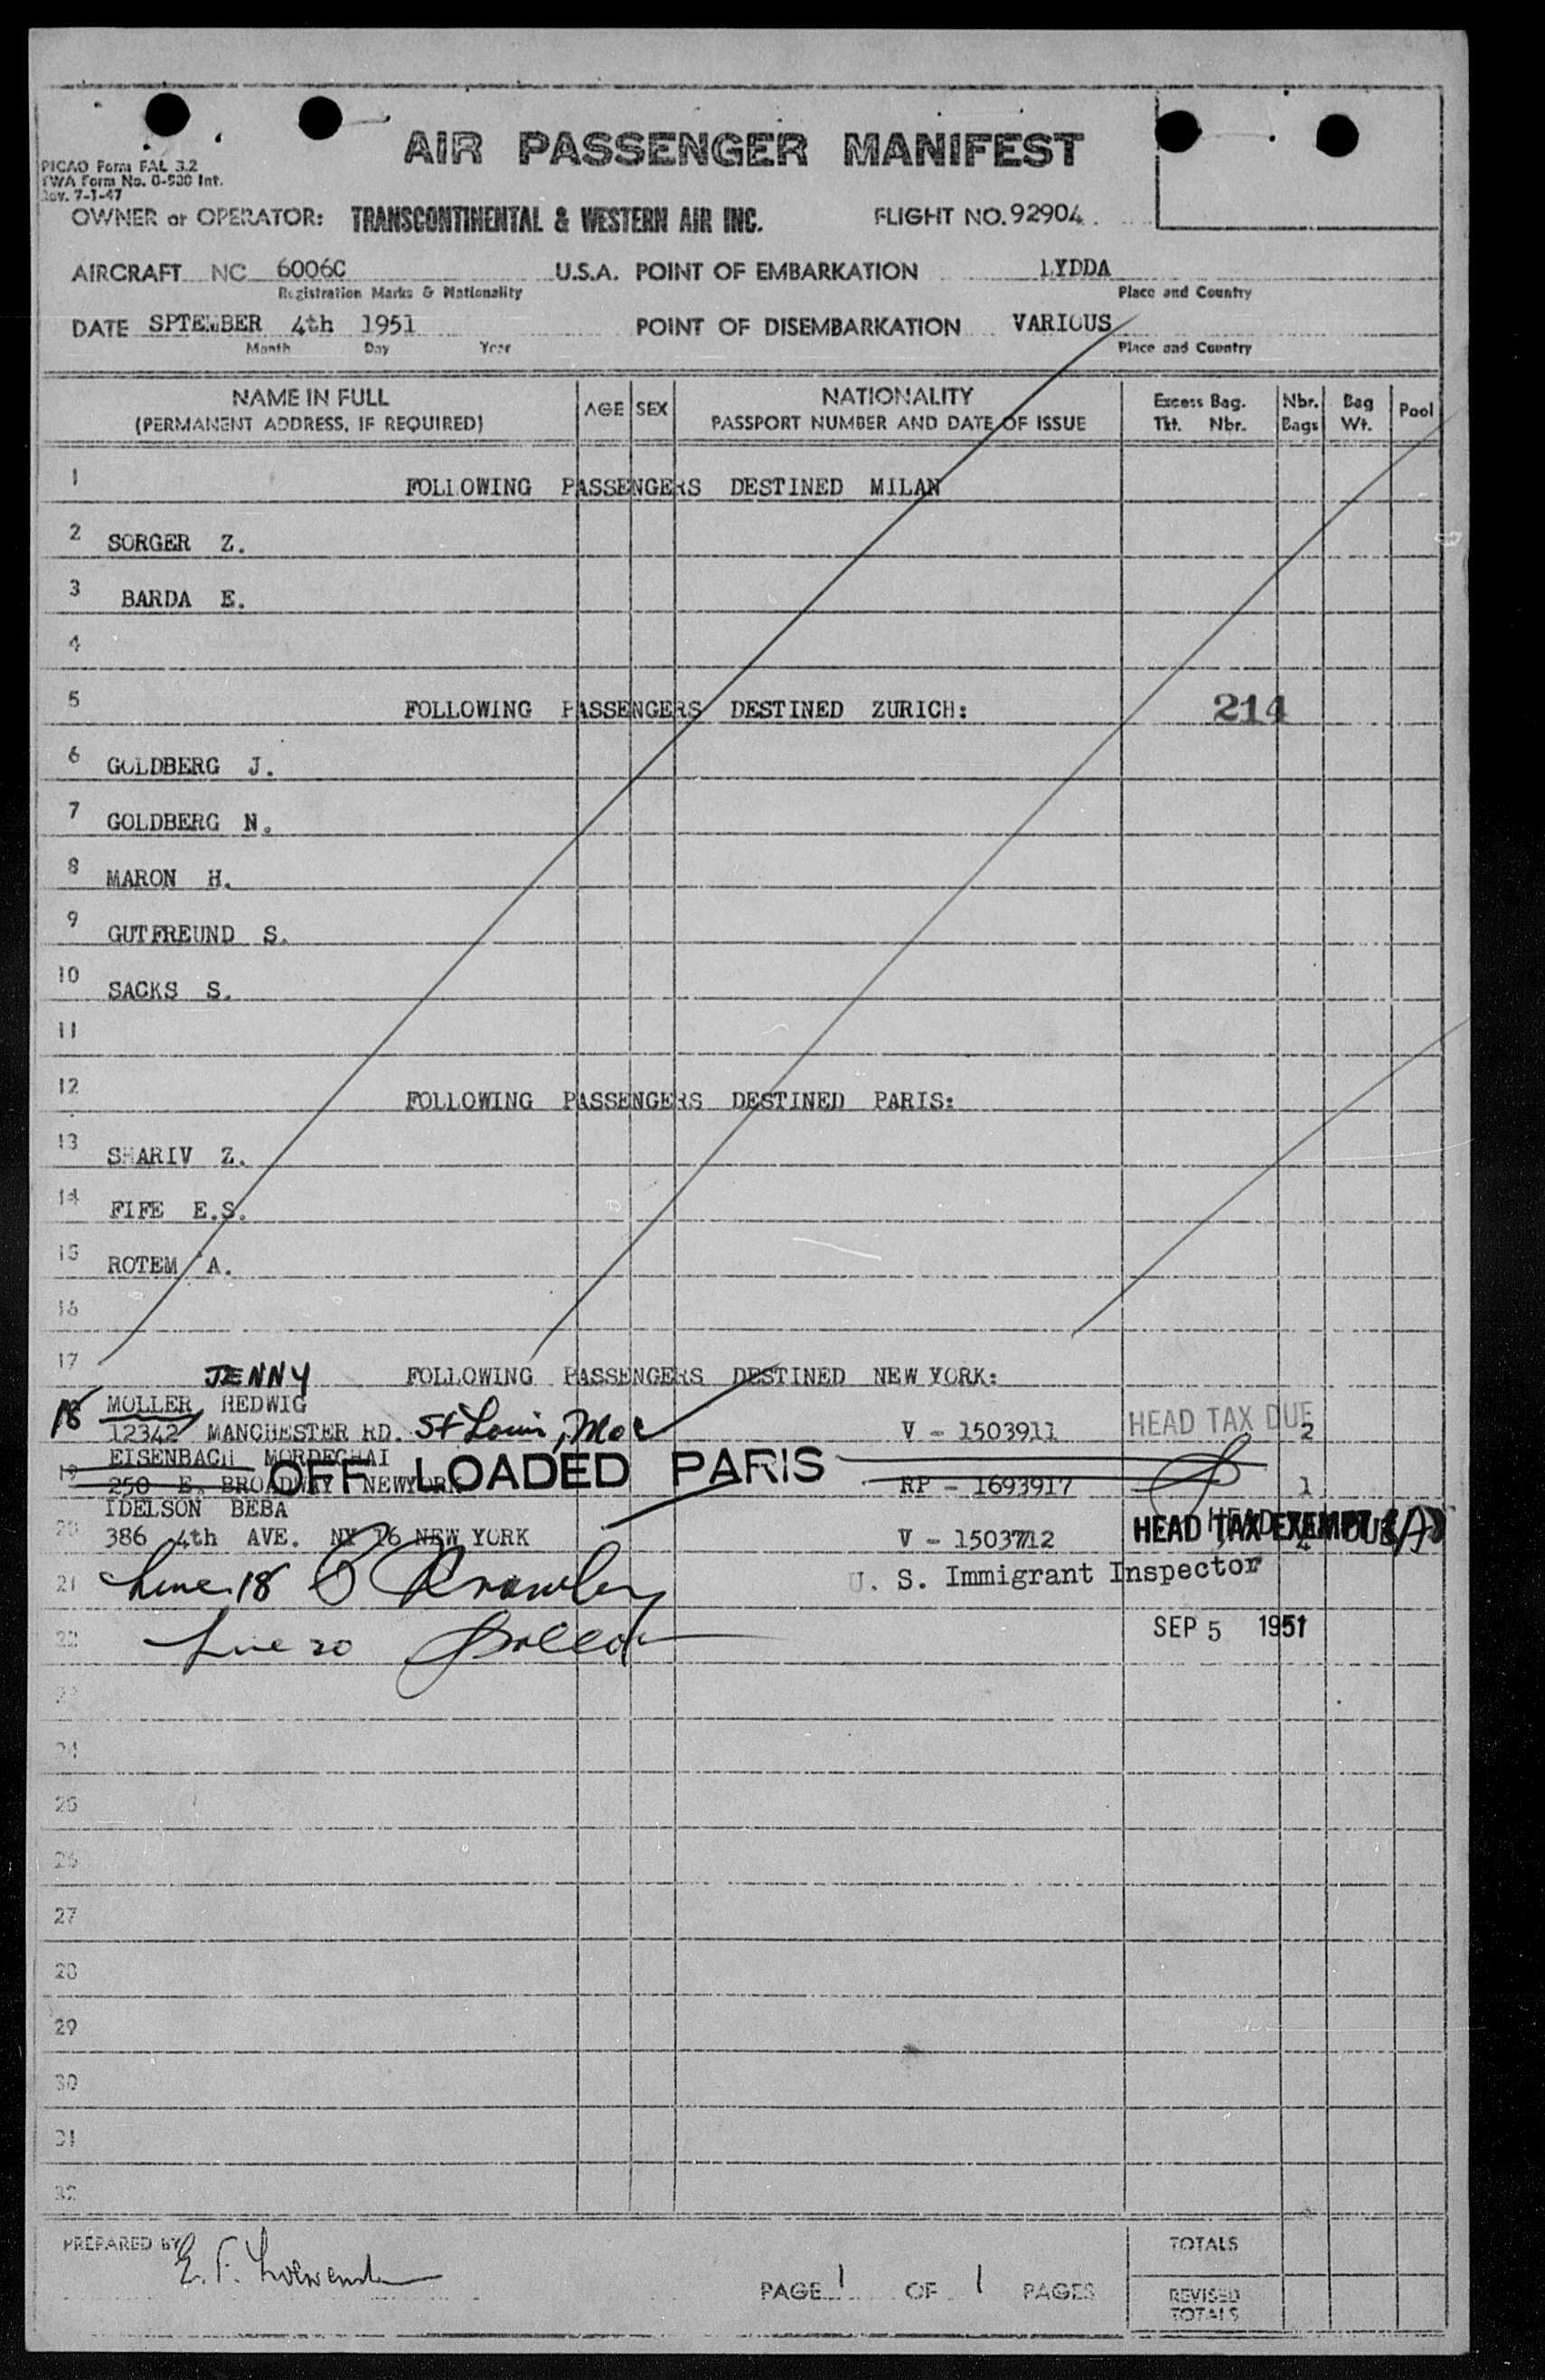 AIR PASSENGER MANIFEST
PICAO Form FAL 3.2
TWA Form No. 0-530 Int.
Rev. 7-1-47
OWNER or OPERATOR: TRANSCONTINENTAL & WESTERN AIR INC. FLIGHT NO. 92904
AIRCRAFT NC 6006C U.S.A. POINT OF EMBARKATION LYDDA
Registration Marks & Nationality Place and Country
DATE SPTEMBER 4th 1951 POINT OF DISEMBARKATION VARIOUS
Month Day Year Place and Country
NAME IN FULL AGE SEX NATIONALITY Excess Bag. Nbr. Bag Pool
(PERMANENT ADDRESS, IF REQUIRED) PASSPORT NUMBER AND DATE OF ISSUE Tkt. Nbr. Bags Wt.
1 FOLLOWING PASSENGERS DESTINED MILAN
2 SORGER Z.
3 BARDA E.
4
5 FOLLOWING PASSENGERS DESTINED ZURICH: 214
6 GOLDBERG J.
7 GOLDBERG N.
8 MARON H.
9 GUTFREUND S.
10 SACKS S.
11
12 FOLLOWING PASSENGERS DESTINED PARIS:
13 SHARIV Z.
14 FIFE E.S.
15 ROTEM A.
16
17 JENNY FOLLOWING PASSENGERS DESTINED NEW YORK:
18 MOLLER HEDWIG
12342 MANCHESTER RD. St Louis, Mo V - 1503911 HEAD TAX DUE 2
EISENBACH MORDECHAI
19 250 E. BROADWAY NEWYORK OFF LOADED PARIS RP - 1693917 1
IDELSON BEBA
20 386 4th AVE. NY 16 NEW YORK V - 1503712 HEAD TAX EXEMPT 4
21 Line 18 U. S. Immigrant Inspector
22 Line 20 SEP 5 1951
23
24
25
26
27
28
29
30
31
32
PREPARED BY E. F. TOTALS
PAGE 1 OF 1 PAGES REVISED
TOTALS